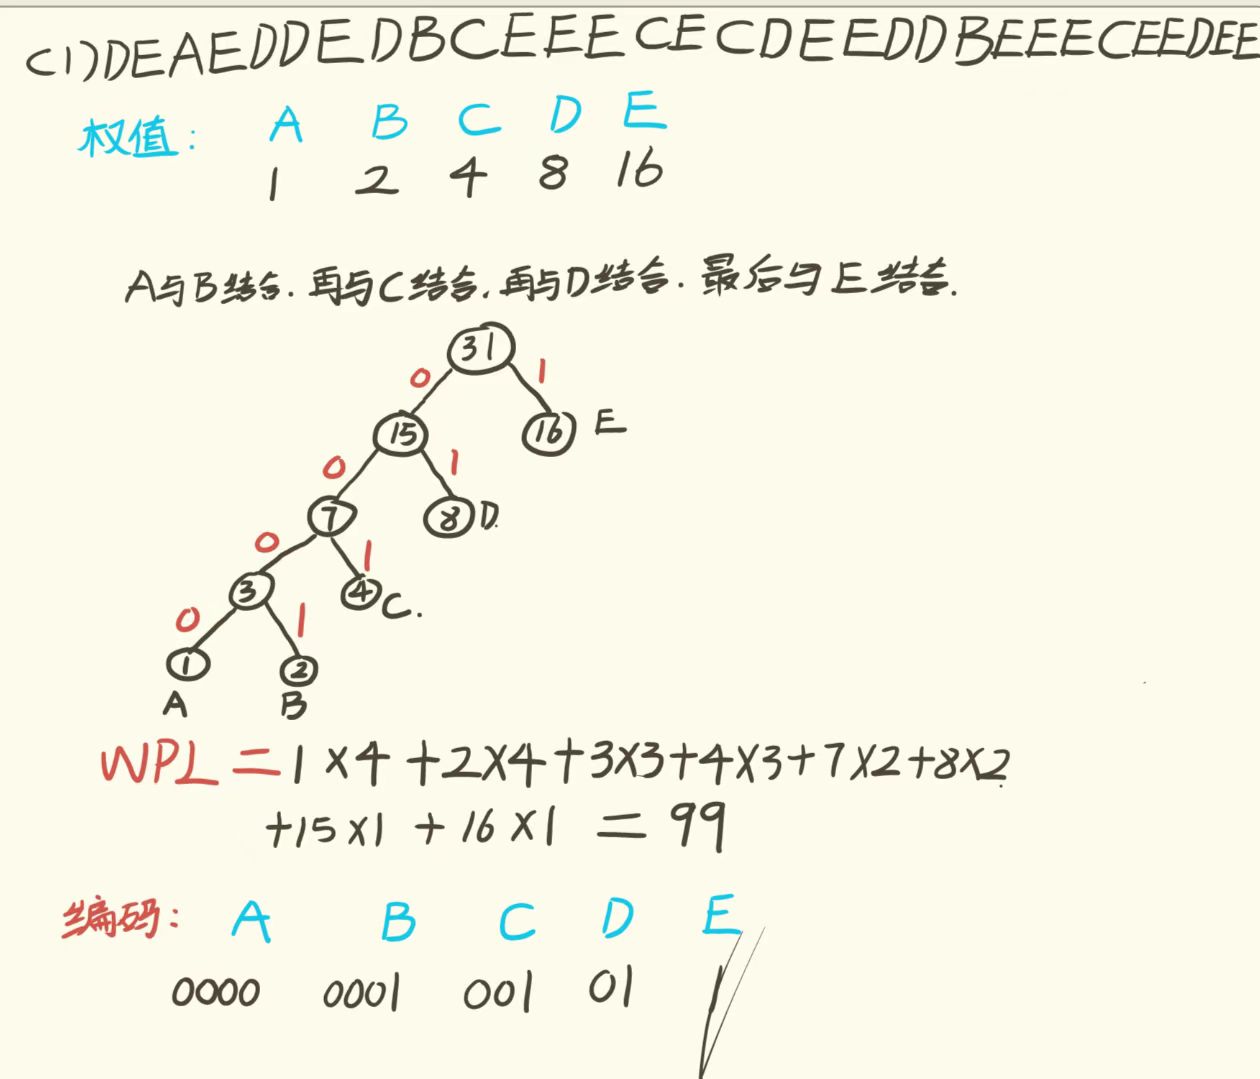 (1)DEAEDDEDBCEEECECDEEDDBEEECEEDEE
权值: A B C D E
1 2 4 8 16
A与B结合.再与C结合.再与D结合.最后与E结合.
31
0 1
15 16 E
0 1
7 8 D.
0 1
3 4 C.
0 1
1 2
A B
WPL=1×4+2×4+3×3+4×3+7×2+8×2
+15×1+16×1=99
编码: A B C D E
0000 0001 001 01 1